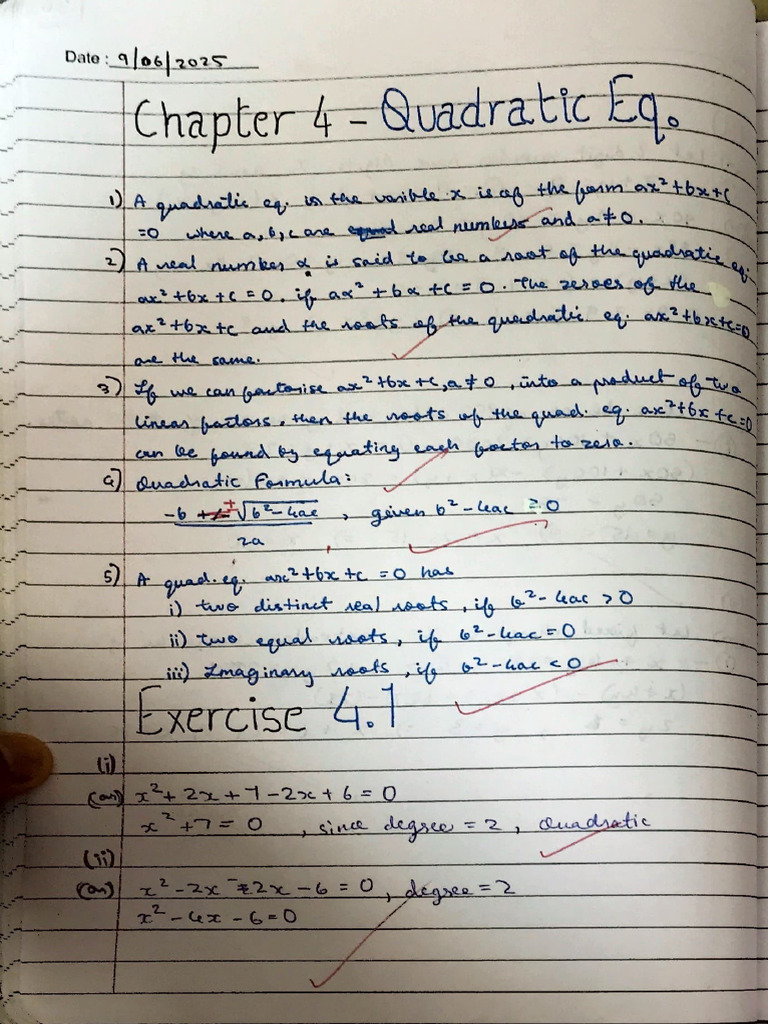 Date : 9/06/2025
Chapter 4 - Quadratic Eq.
1) A quadratic eq. in the varible x is of the form ax² + bx + c
=0 where a, b, c are real numbers and a ≠ 0.
2) A real number α is said to be a root of the quadratic eq.
ax² + bx + c = 0. if aα² + bα + c = 0. The zeroes of the
ax² + bx + c and the roots of the quadratic eq. ax² + bx + c = 0
are the same.
3) If we can factorise ax² + bx + c, a ≠ 0, into a product of two
linear factors, then the roots of the quad. eq. ax² + bx + c = 0
can be found by equating each factor to zero.
4) Quadratic Formula:
-b ± √b² - 4ac , given b² - 4ac ≥ 0
2a
5) A quad. eq. ax² + bx + c = 0 has
i) two distinct real roots, if b² - 4ac > 0
ii) two equal roots, if b² - 4ac = 0
iii) Imaginary roots, if b² - 4ac < 0
Exercise 4.1
(i)
(an) x² + 2x + 7 - 2x + 6 = 0
x² + 7 = 0 , since degree = 2, Quadratic
(ii)
(an) x² - 2x - 2x - 6 = 0, degree = 2
x² - 4x - 6 = 0